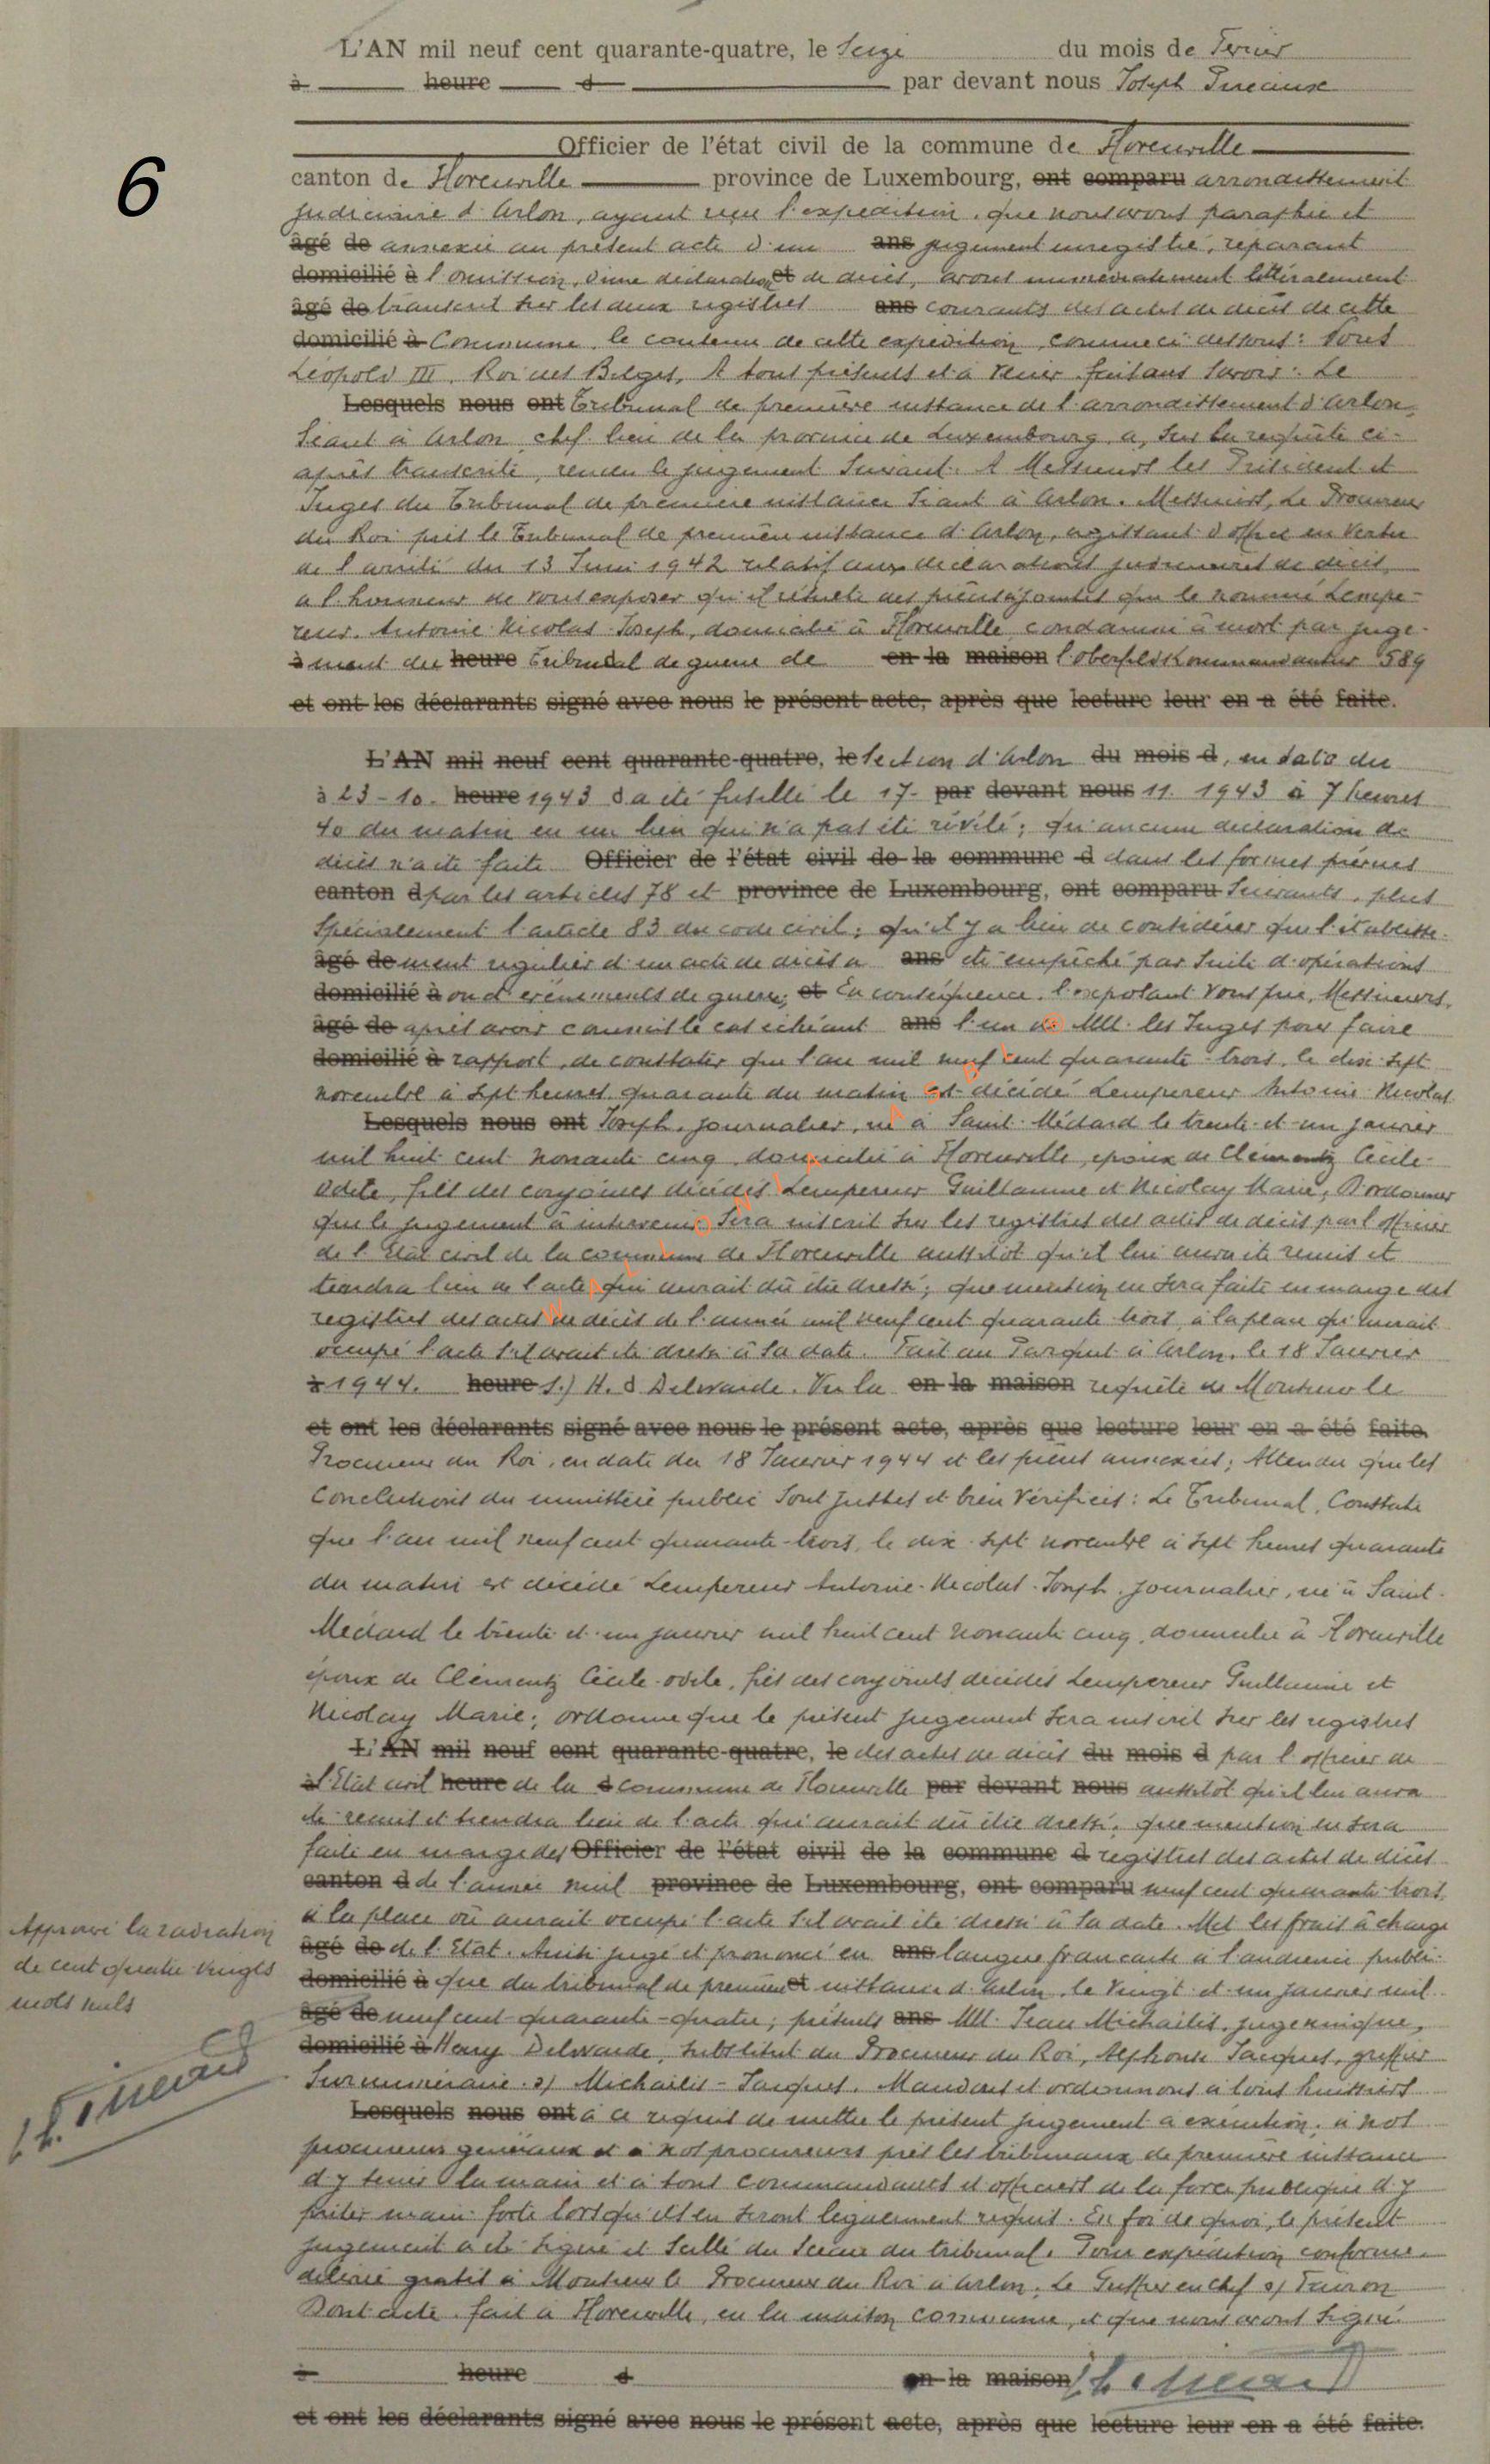 L'AN mil neuf cent quarante-quatre, le Seize du mois de Février
à heure d par devant nous Joseph
6
Officier de l'état civil de la commune de Florenville
canton de Florenville province de Luxembourg, ont comparu arrondissement
judiciaire d'Arlon, ayant reçu l'expédition, que nous avons paraphée et
âgé de annexée au présent acte d'un ans jugement enregistré, réparant
domicilié à l'omission, d'une déclaration et de décès, avons immédiatement littéralement
âgé de transcrit sur les deux registres ans courants des actes de décès de cette
domicilié à Commune, le contenu de cette expédition, comme ci-dessous: Nous
Léopold III, Roi des Belges, A tous présents et à venir faisons savoir: Le
Lesquels nous ont Tribunal de première instance de l'arrondissement d'Arlon,
Séant à Arlon, chef-lieu de la province de Luxembourg, a, sur la requête ci-
après transcrite, rendu le jugement suivant. A Messieurs les Président et
Juges du Tribunal de première instance séant à Arlon. Messieurs, Le Procureur
du Roi près le Tribunal de première instance d'Arlon, agissant d'office en vertu
de l'arrêté du 13 Juin 1942 relatif aux déclarations judiciaires de décès,
a l'honneur de vous exposer qu'il résulte des pièces jointes que le nommé Lempe-
reur, Antoine-Nicolas-Joseph, domicilié à Florenville, condamné à mort par juge-
à ment du heure Tribunal de guerre de en la maison l'Oberfeldkommandantur 589
et ont les déclarants signé avec nous le présent acte, après que lecture leur en a été faite.
L'AN mil neuf cent quarante-quatre, le Section d'Arlon du mois d, en date du
à 23-10- heure 1943 a été fusillé le 17- par devant nous 11. 1943 à 7 heures
40 du matin en un lieu qui n'a pas été révélé; qu'aucune déclaration de
décès n'a été faite Officier de l'état civil de la commune d dans les formes prévues
canton d par les articles 78 et province de Luxembourg, ont comparu suivants, plus
spécialement l'article 83 du code civil; qu'il y a lieu de considérer que l'établisse-
âgé de ment régulier d'un acte de décès a ans été empêché par suite d'opérations
domicilié à ou d'événements de guerre; et En conséquence, l'exposant vous prie, Messieurs,
âgé de après avoir commis le cas échéant ans l'un de MM. les Juges pour faire
domicilié à rapport, de constater que l'an mil neuf cent quarante-trois, le dix-sept
novembre à sept heures quarante du matin est décédé Lempereur Antoine-Nicolas
Lesquels nous ont Joseph, journalier, né à Saint-Médard le trente-et-un janvier
mil huit cent nonante cinq, domicilié à Florenville, époux de Clémentz Cécile-
Odile, fils des conjoints décédés Lempereur Guillaume et Nicolay Marie; D'ordonner
que le jugement à intervenir sera inscrit sur les registres des actes de décès par l'officier
de l'Etat civil de la commune de Florenville aussitôt qu'il lui aura été remis et
tiendra lieu de l'acte qui aurait dû être dressé; que mention en sera faite en marge des
registres des actes de décès de l'année mil neuf cent quarante trois, à la place qu'aurait
occupé l'acte s'il avait été dressé à sa date. Fait au Parquet à Arlon, le 18 Janvier
à 1944. heure s.) H. Delvaide. Vu la en la maison requête de Monsieur le
et ont les déclarants signé avec nous le présent acte, après que lecture leur en a été faite.
Procureur du Roi, en date du 18 Janvier 1944 et les pièces annexées; Attendu que les
Conclusions du ministère public sont justes et bien vérifiées: Le Tribunal, Constate
que l'an mil neuf cent quarante-trois, le dix-sept novembre à sept heures quarante
du matin est décédé Lempereur Antoine-Nicolas-Joseph, journalier, né à Saint-
Médard le trente et un janvier mil huit cent nonante cinq, domicilié à Florenville
époux de Clémentz Cécile-Odile, fils des conjoints décédés Lempereur Guillaume et
Nicolay Marie; ordonne que le présent jugement sera inscrit sur les registres
L'AN mil neuf cent quarante-quatre, le des actes de décès du mois d par l'officier de
à l'Etat civil heure de la d commune de Florenville par devant nous aussitôt qu'il lui aura
été remis et tiendra lieu de l'acte qui aurait dû être dressé, que mention en sera
faite en marge des Officier de l'état civil de la commune d registres des actes de décès
canton d de l'année mil province de Luxembourg, ont comparu neuf cent quarante trois,
à la place où aurait occupé l'acte s'il avait été dressé à sa date. Met les frais à charge
âgé de de l'Etat. Ainsi jugé et prononcé en ans langue française à l'audience publi-
domicilié à que du tribunal de première et instance d'Arlon, le vingt-et-un janvier mil
âgé de neuf cent-quarante-quatre; présents ans MM. Jean Michaëlis, juge unique,
domicilié à Henry Delvaide, substitut du Procureur du Roi, Alphonse Jacques, greffier
surnuméraire. s) Michaëlis-Jacques. Mandons et ordonnons à tous huissiers
Lesquels nous ont à ce requis de mettre le présent jugement à exécution; à nos
procureurs généraux et à nos procureurs près les tribunaux de première instance
d'y tenir la main et à tous commandants et officiers de la force publique d'y
prêter main forte lorsqu'ils en seront légalement requis. En foi de quoi, le présent
jugement a été signé et scellé du sceau du tribunal. Pour expédition conforme
délivrée gratis à Monsieur le Procureur du Roi à Arlon. Le Greffier en chef s)
Dont acte, fait à Florenville, en la maison communale, et que nous avons signé.
à heure d en la maison
et ont les déclarants signé avec nous le présent acte, après que lecture leur en a été faite.
Approuvé la radiation
de cent quatre vingts
mots nuls